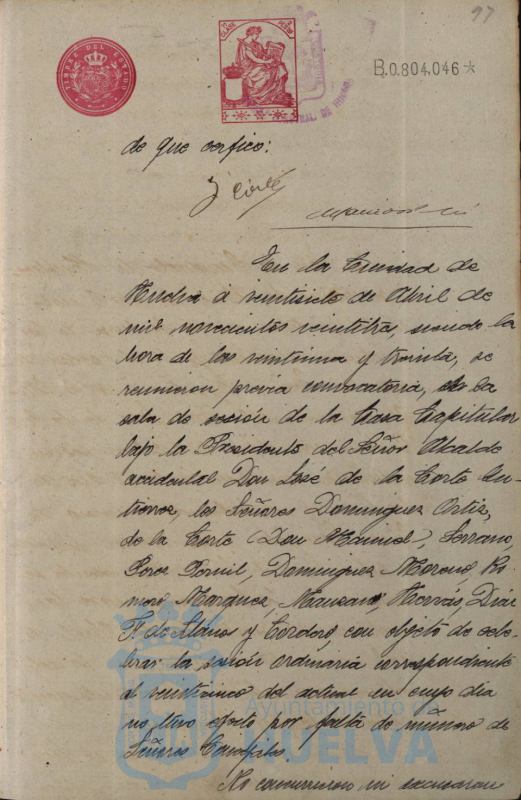 97
TIMBRE DEL ESTADO
CLASE
B.0.804.046*
de que certifico:
J Corte
En la Ciudad de
Huelva á veintisiete de Abril de
mil novecientos veintitres, siendo la
hora de las veintiuna y treinta, se
reunieron previa convocatoria, en la
sala de sesión de la Casa Capitular
bajo la Presidencia del Señor Alcalde
accidental Don José de la Corte Gu-
tierrez, los Señores Dominguez Ortiz,
de la Corte (Don Manuel), Serrano,
Perez Pornil, Dominguez Moreno, Ro-
mero Marquez, Manzano, Hervás, Diaz
F. de Llanos y Cordero, con objeto de cele-
brar la sesión ordinaria correspondiente
al veinticinco del actual en cuyo dia
no tuvo efecto por falta de número de
Señores Concejales.
No concurrieron ni excusaron
Ayuntamiento de
HUELVA